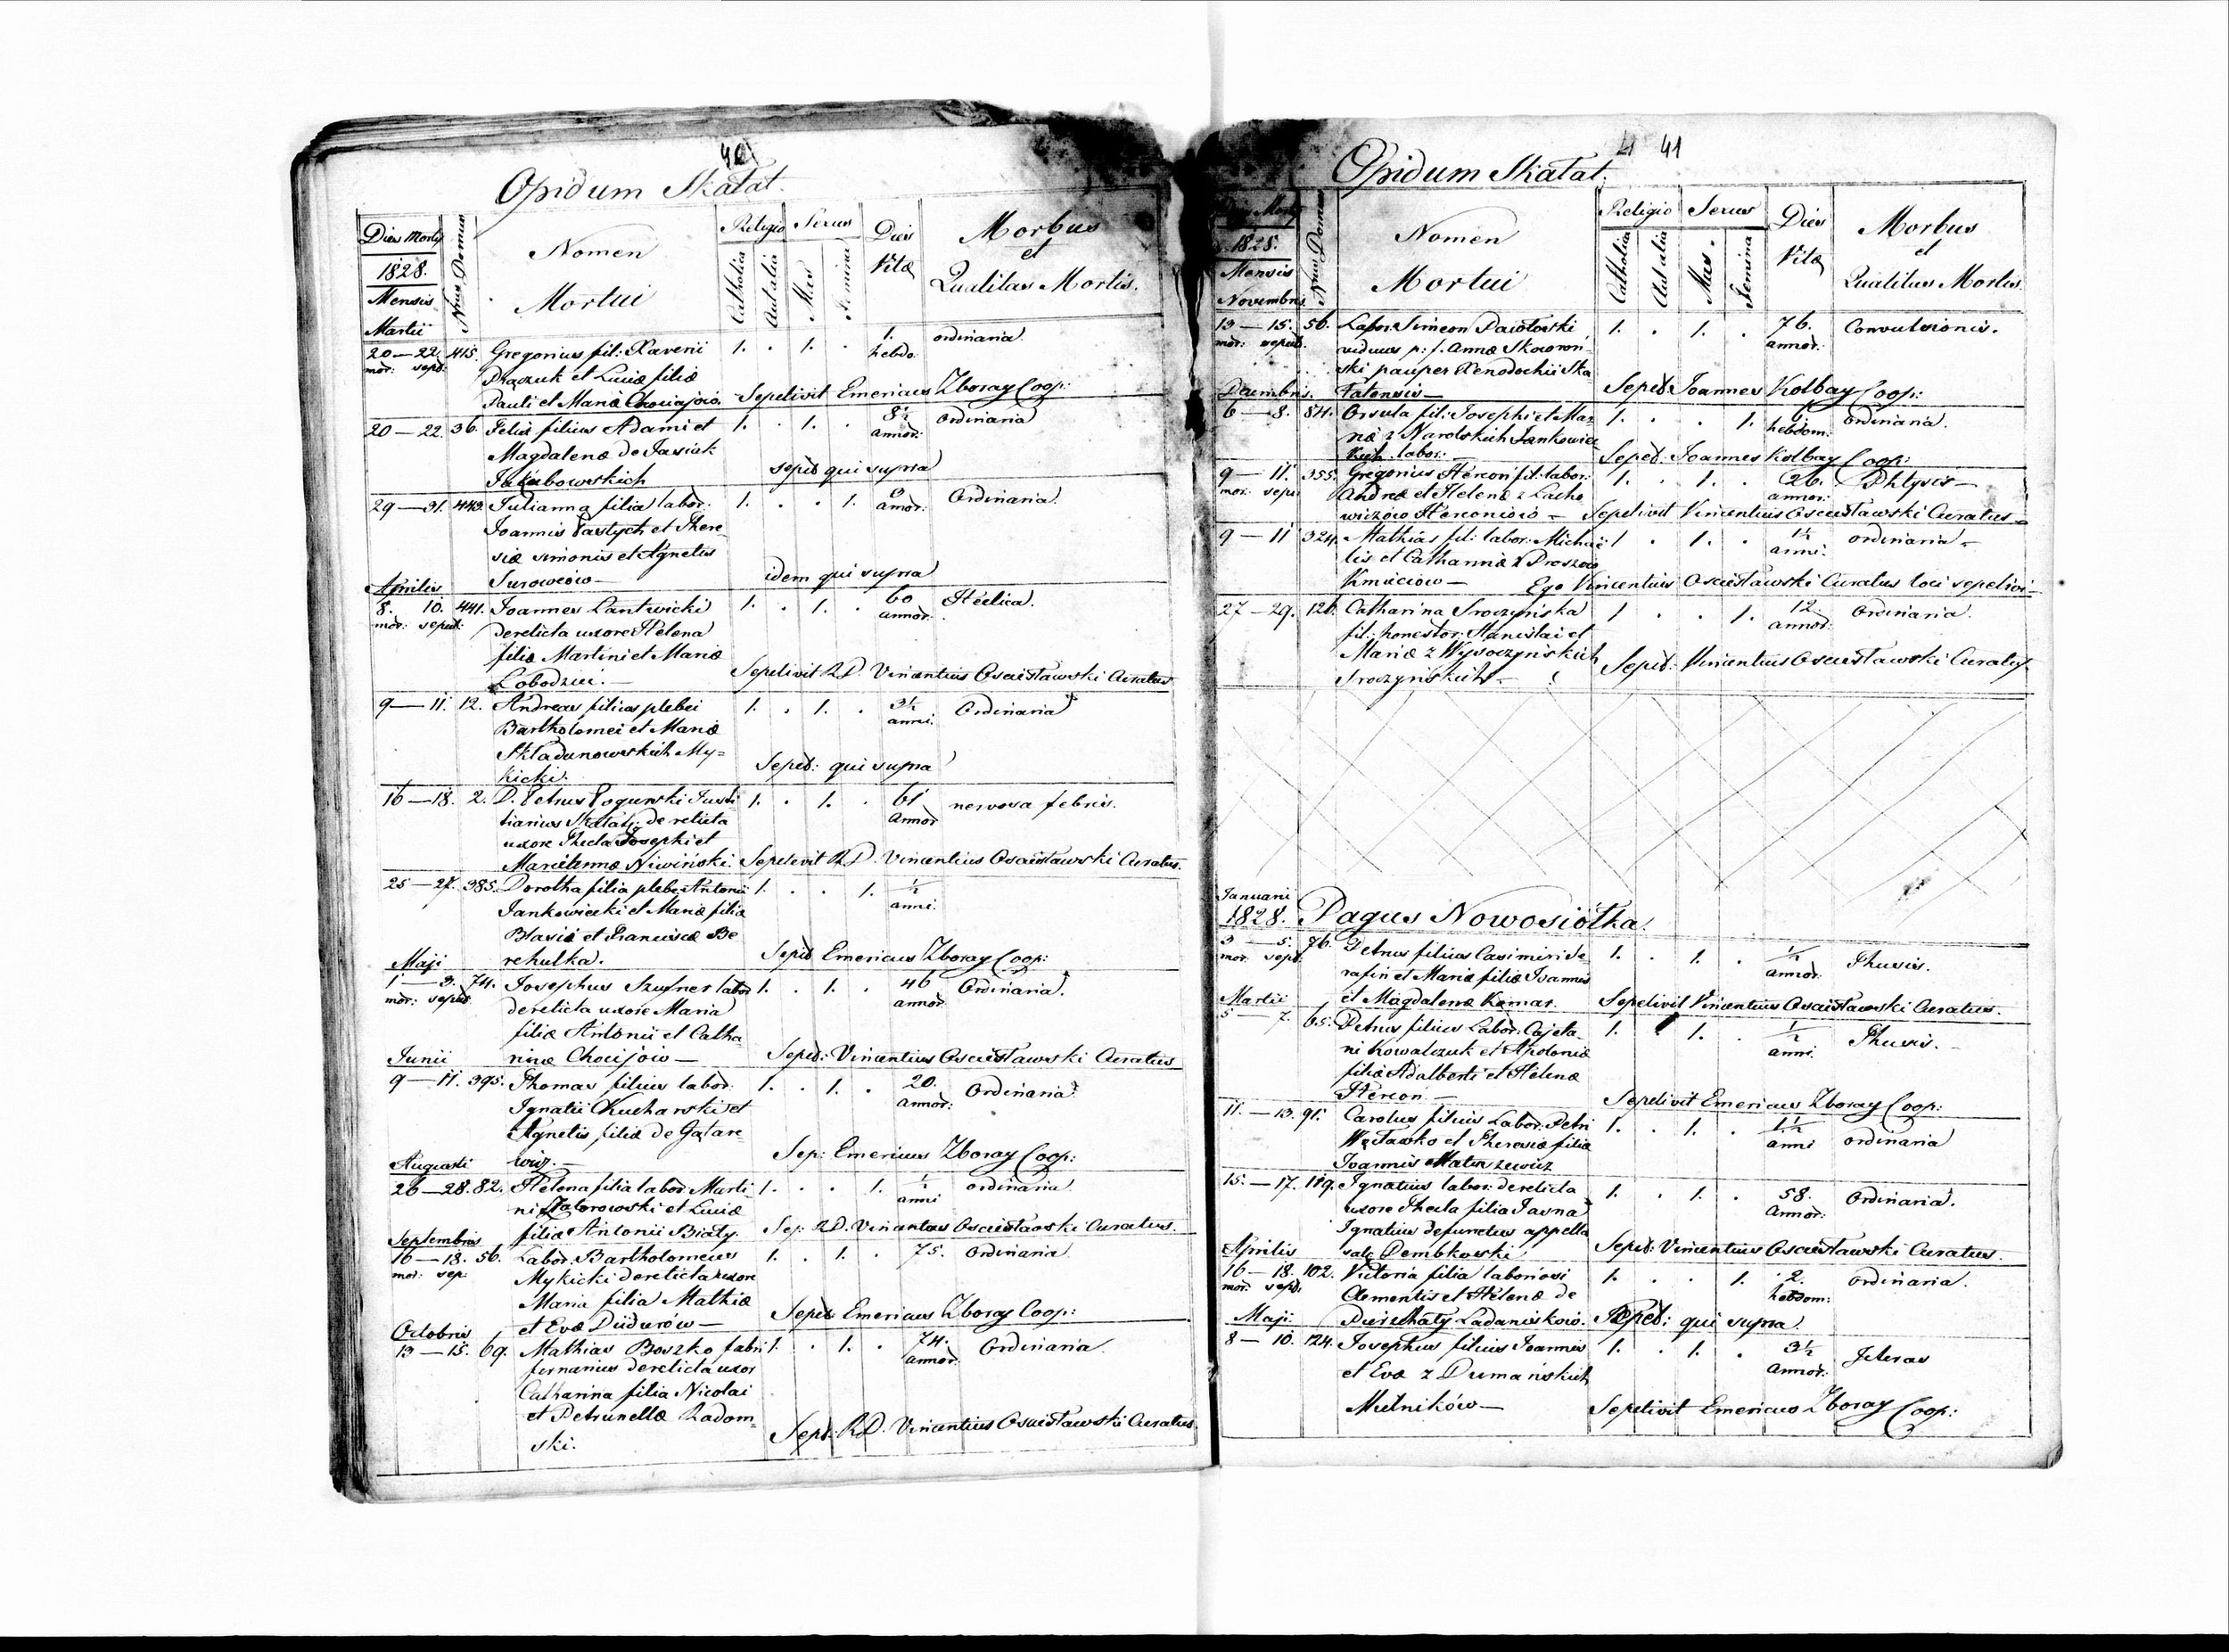 40
Opidum Skałat.
Dies Mortis
1828.
Mensis
Martii
Nrus Domus
Nomen
Mortui
Religio
Catholica
Aut alia
Sexus
Mas
Femina
Dies
Vitæ
Morbus
et
Qualitas Mortis.
20 — 22. 415. Gregorius fil: Xaverii 1. . 1. . 1. ordinaria
mor: sepel: hebdo:
et Luciæ filiæ
Pauli et Mariæ Sepelivit Emericus Zboray Coop:
20 — 22. 36. Felix filius Adami et 1. . 1. . 8½ ordinaria
Magdalenæ de Jasiak annor:
Jakubowskich seped qui supra
29 — 31. 443. Julianna filia labor: 1. . . 1. Ordinaria
Joannis Pastych et There- annor:
siæ Simonis et Agnetis
Surowców — idem qui supra
Aprilis
8. 10. 441. Joannes Lantwicki 1. . 1. . 60 Hectica.
mor: sepult: derelicta uxore Helena annor:
filia Martini et Mariæ
Łobodziec. — Sepelivit R.D. Vincentius Osciisławski Curatus
9 — 11. 12. Andreas filius plebei 1. . 1. . 3½ Ordinaria
Bartholomei et Mariæ anni.
Składanowskich My=
kicki. Seped: qui supra
16 — 18. 2. D. Petrus Pogurski Justi 1. . 1. . 61 nervosa febris.
tiarius Skałat: derelicta annor
uxore Thecla Josephi et
Mariannæ Niwiński. Sepelevit R.D. Vincentius Osciisławski Curatus.
25 — 27. 385. Dorotha filia plebei Antonii 1. . . 1. ½
Jankowiecki et Mariæ filiæ anni.
Blasii et Franciscæ Be
rehulka. Seped Emericus Zboray Coop:
Maji
1 — 3. 74. Josephus Szufner labor 1. . 1. . 46 Ordinaria.
mor: seped derelicta uxore Maria annor
filia Antonii et Catha-
rinæ Chocijów — Seped: Vincentius Osciisławski Curatus
Junii
9 — 11. 395. Thomas filius labor: 1. . 1. . 20. Ordinaria
Ignatii Kucharski et annor:
Agnetis filiæ de Gatare-
wicz. — Sep: Emericus Zboray Coop:
Augusti
26 — 28. 82. Helena filia labor: Marti 1. . . 1. ½ ordinaria
ni Zatorowski et Luciæ anni
filiæ Antonii Biały. Sep: R.D. Vincentius Osciisławski Curatus.
Septembris
16 — 18. 56. Labor: Bartholomeus 1. . 1. . 75. Ordinaria
mor: sep: Mykicki derelicta uxore
Maria filia Mathiæ
et Evæ Dudurów — Seped Emericus Zboray Coop:
Octobris
13 — 15. 69. Mathias Boszko fabri 1. . 1. . 74. Ordinaria
derelicta uxor annor:
Catharina filia Nicolai
et Petrunellæ Radom-
ski. Seped: R.D. Vincentius Osciisławski Curatus.
41
Opidum Skałat.
1828.
Mensis
Novembris
Nrus Domus
Nomen
Mortui
Religio
Catholica
Aut alia
Sexus
Mas.
Femina
Dies
Vitæ
Morbus
et
Qualitas Mortis.
13 — 15. 56. Labor: Simeon Pawłowski 1. . 1. . 76. Convulsionis.
mor: viduus p: f. Annæ Skowroń- annor:
ski pauper Xenodochii Ska
łatensis — Seped: Joannes Kolbay Coop:
Decembris.
6 — 8. 84. Orsula fil: Josephi et Ma- 1. . . 1. 6 Ordinaria.
riæ z Narolskich Jankowiec hebdom:
kich labor: — Seped: Joannes Kolbay Coop:
9 — 11. 355. Gregorius Hercon fil: labor: 1. . 1. . 26. Phtysis —
mor: sepe: Andreæ et Helenæ z Lacho annor:
wiczów Herconiów — Sepelivit Vincentius Osciisławski Curatus —
9 — 11 324. Mathias fil: labor: Michaë 1 . 1. . 1½ ordinaria —
lis et Catharinæ z Proszów anni.
Kmiciów — Ego Vincentius Osciisławski Curatus loci sepelivi —
27 — 29. 126. Catharina Sroczyńska 1 . . 1. 12. Ordinaria.
fil: honestor: Stanislai et annor:
Mariæ z Wysoczyńskich
Sroczyńskich — Seped: Vincentius Osciisławski Curatus.
Januarii
1828. Pagus Nowosiołka.
3 — 5. 76. Petrus filius Casimiri Se- 1. . 1. . ½ Thusis.
mor sepel rafin et Mariæ filiæ Joannis annor:
et Magdalenæ Komar. Sepelivit Vincentius Osciisławski Curatus.
Martii
5 — 7. 65. Petrus filius Labor: Cajeta- 1. . 1. . ½ Thusis.
ni Kowalczuk et Apoloniæ anni
filiæ Adalberti et Helenæ
Hercon. — Sepelivit Emericus Zboray Coop:
11. — 13. 91. Carolus filius Labor: Petri 1. . 1. . 1½ ordinaria
et Theresiæ filiæ anni
Joannis
15. — 17. 119. Ignatius labor: derelicta 1. . 1. . 58. Ordinaria.
uxore Thecla filia annor:
Ignatius defunctus appella
Dembkowski Seped: Vincentius Osciisławski Curatus.
Aprilis
16 — 18. 102. Victoria filia laboriosi 1. . . 1. 2. Ordinaria.
mor: seped: Clementis et Helenæ de hebdom:
Ladaniskow. Seped: qui supra
Maji
8 — 10. 124. Josephus filius Joannis 1. . 1. . 3½
et Evæ z Dumańskich annor:
Mielników — Sepelivit Emericus Zboray Coop: